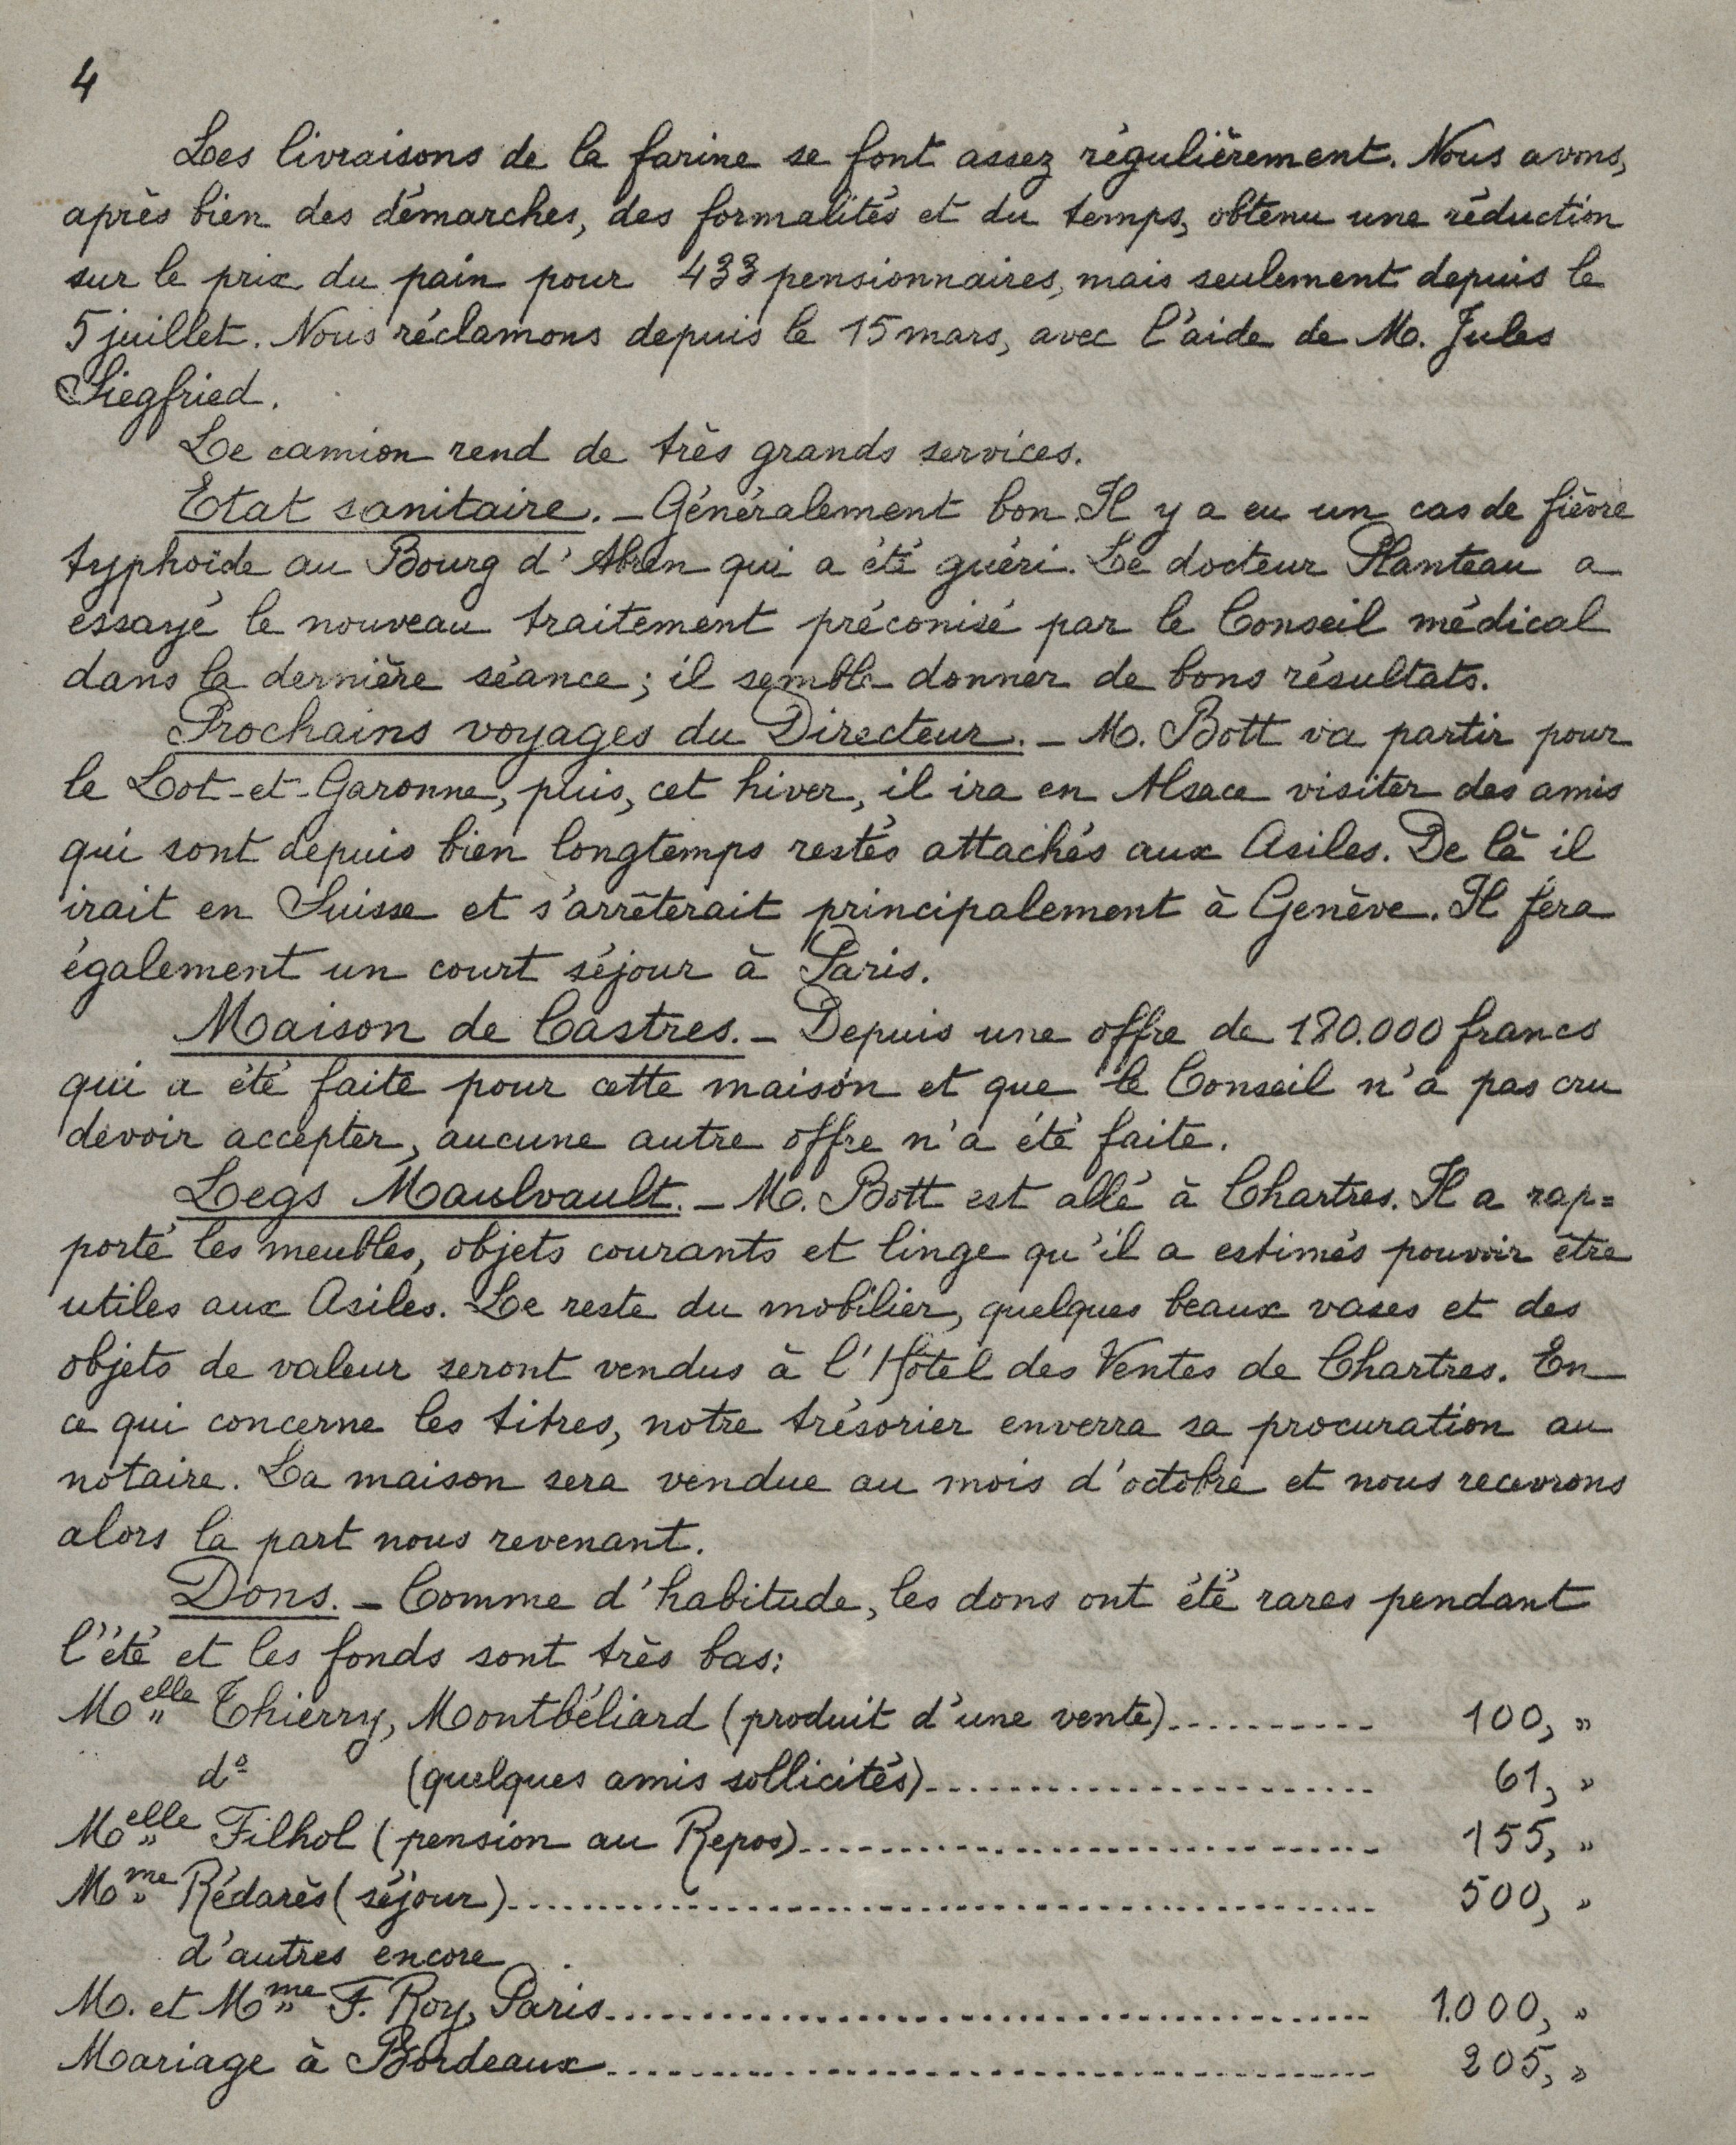 4
Les livraisons de la farine se font assez régulièrement. Nous avons,
après bien des démarches, des formalités et du temps, obtenu une réduction
sur le prix du pain pour 433 pensionnaires, mais seulement depuis le
5 juillet. Nous réclamons depuis le 15 mars, avec l'aide de M. Jules
Siegfried.
Le camion rend de très grands services.
Etat sanitaire. _ Généralement bon. Il y a eu un cas de fièvre
typhoïde au Bourg d'Abren qui a été guéri. Le docteur Planteau a
essayé le nouveau traitement préconisé par le Conseil médical
dans la dernière séance ; il semble donner de bons résultats.
Prochains voyages du Directeur. _ M. Bott va partir pour
le Lot-et-Garonne, puis, cet hiver, il ira en Alsace visiter des amis
qui sont depuis bien longtemps restés attachés aux Asiles. De là il
irait en Suisse et s'arrêterait principalement à Genève. Il fera
également un court séjour à Paris.
Maison de Castres. _ Depuis une offre de 180.000 francs
qui a été faite pour cette maison et que le Conseil n'a pas cru
devoir accepter, aucune autre offre n'a été faite.
Legs Maulvault. _ M. Bott est allé à Chartres. Il a rap=
porté les meubles, objets courants et linge qu'il a estimés pouvoir être
utiles aux Asiles. Le reste du mobilier, quelques beaux vases et des
objets de valeur seront vendus à l'Hôtel des Ventes de Chartres. En
ce qui concerne les titres, notre trésorier enverra sa procuration au
notaire. La maison sera vendue au mois d'octobre et nous recevrons
alors la part nous revenant.
Dons. _ Comme d'habitude, les dons ont été rares pendant
l'été et les fonds sont très bas :
Melle Thierry, Montbéliard (produit d'une vente)........... 100, "
d° (quelques amis sollicités)........................ 61, "
Melle Filhol (pension au Repos)............................ 155, "
Mme Rédarès (séjour)............................................ 500, "
d'autres encore
M. et Mme F. Roy, Paris........................................ 1.000, "
Mariage à Bordeaux........................................ 205, "